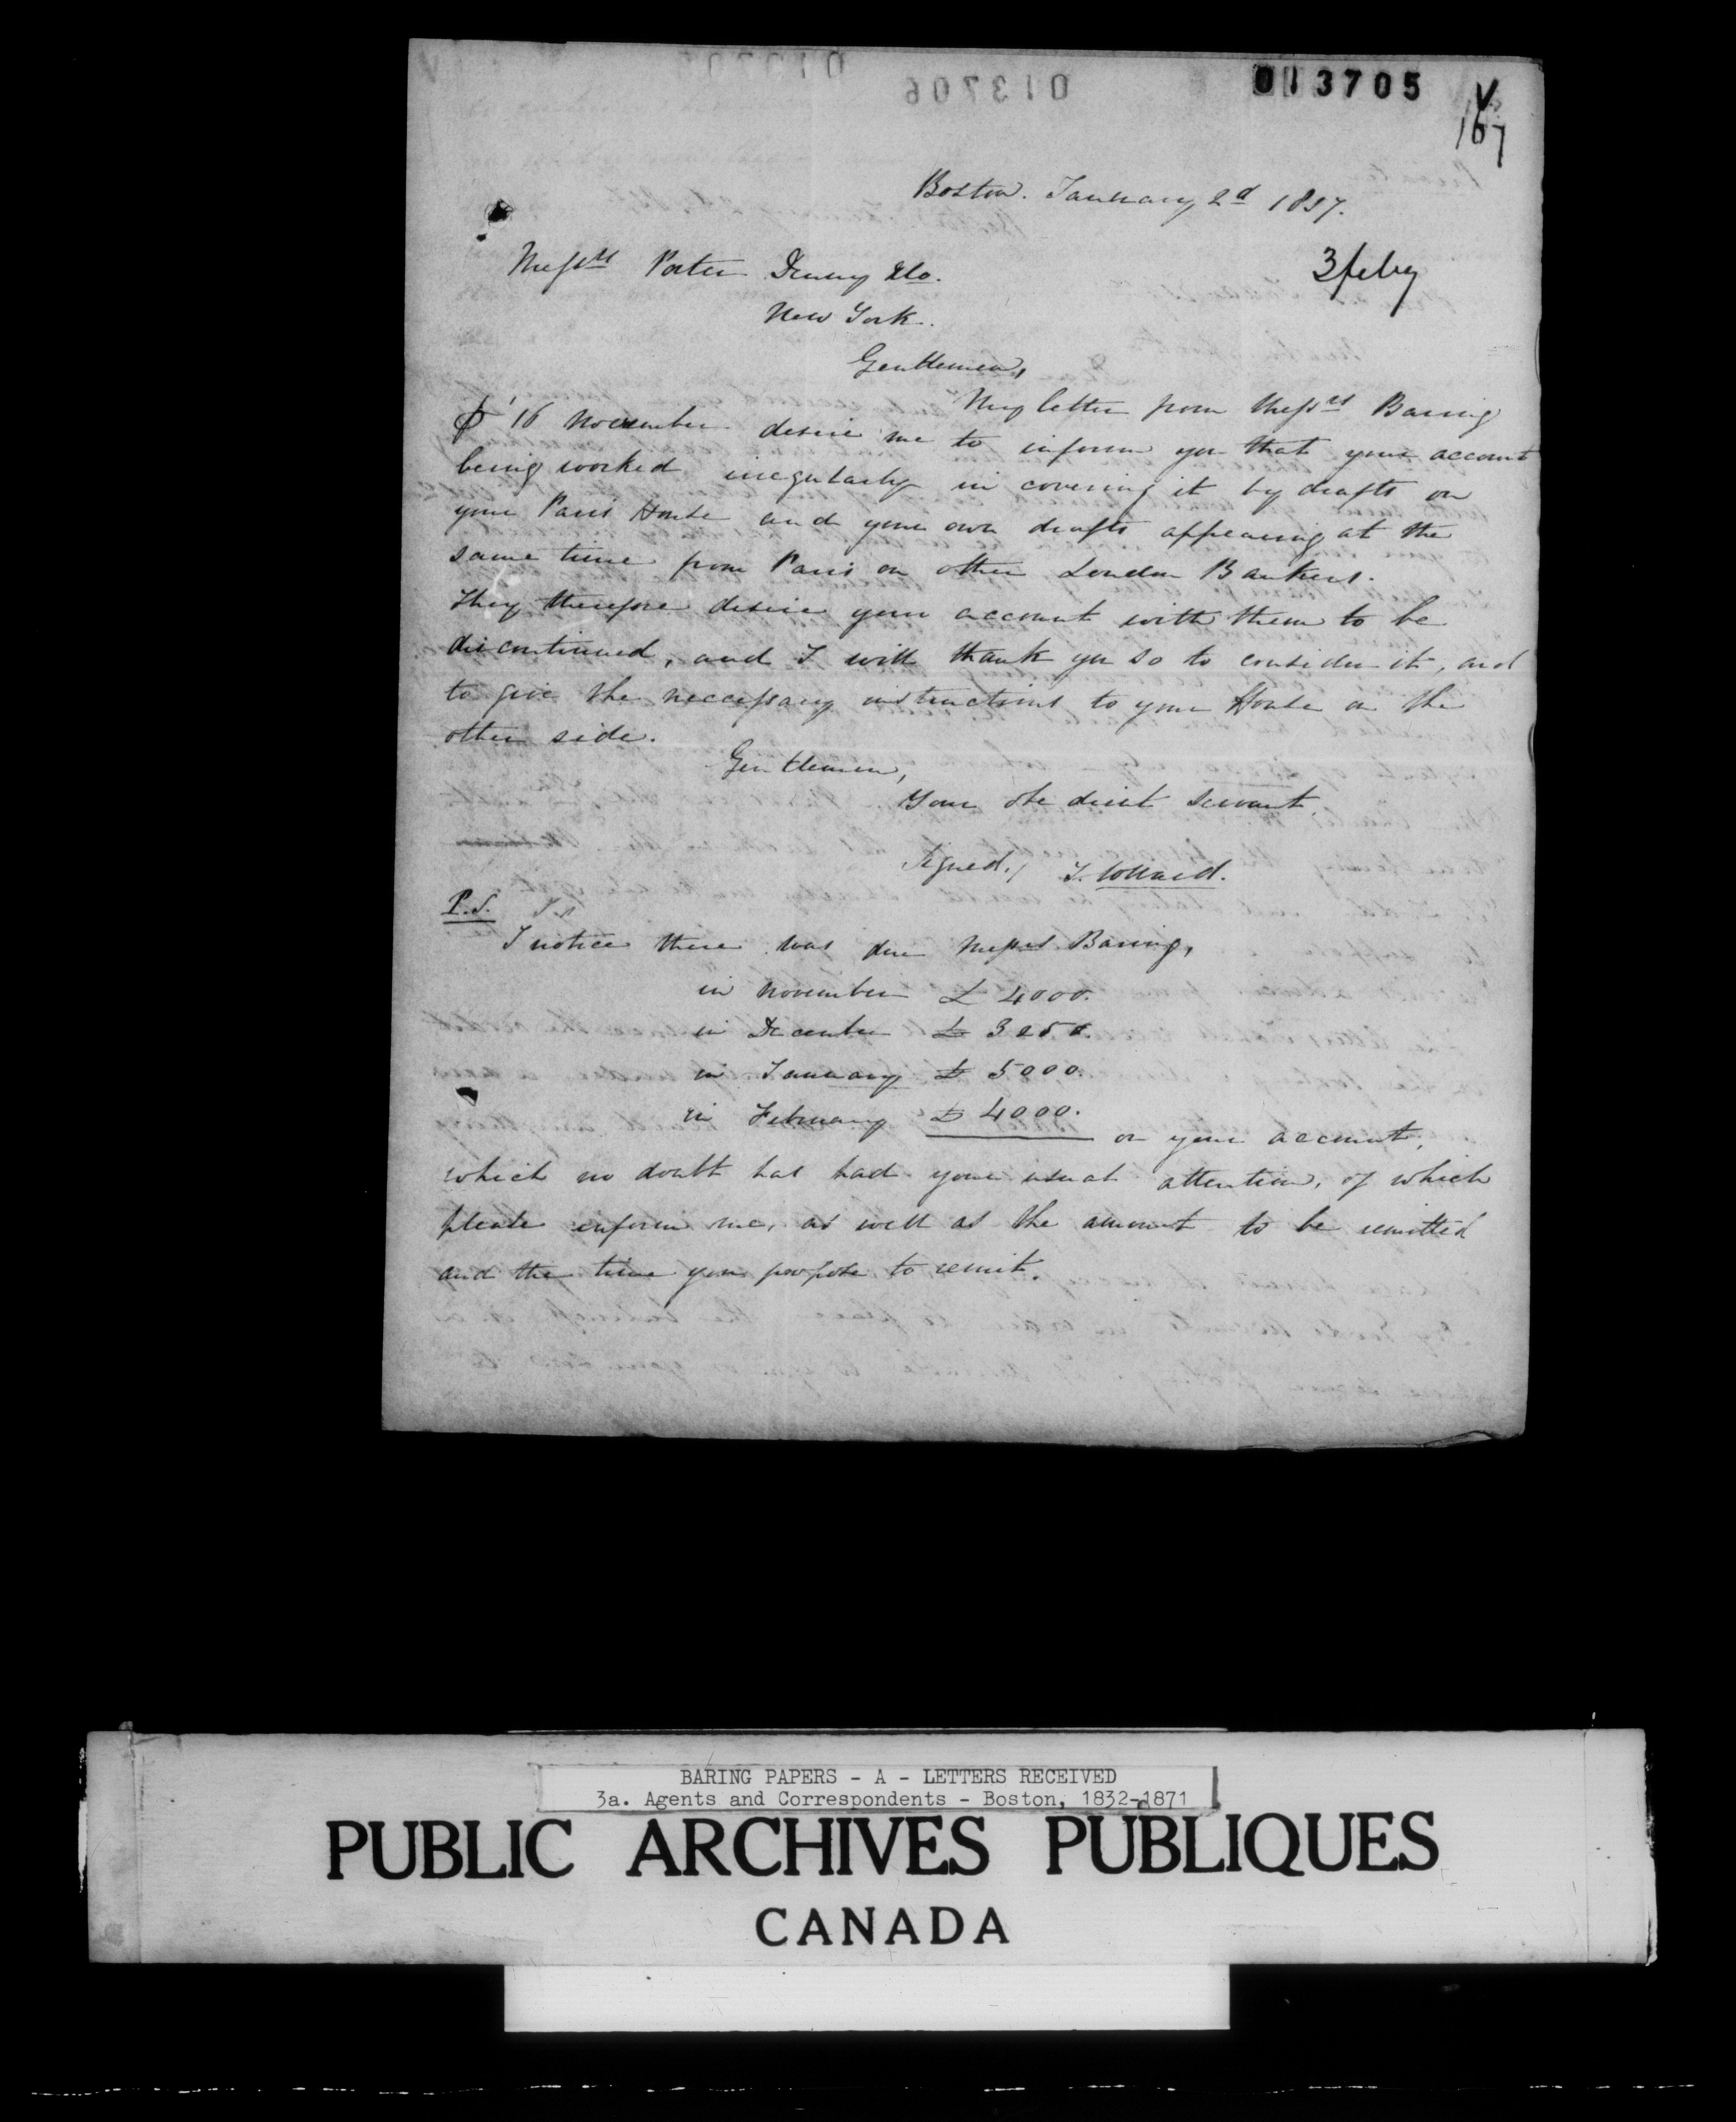 013705
V
167
Boston. January 2d 1837.
3 feby
Messrs Porter Denny &Co.
New York.
Gentlemen,
My letter from Messrs Baring
16 November desire me to inform you that your account
being worked irregularly in covering it by drafts on
your Paris House and your own drafts appearing at the
same time from Paris on other London Bankers.
They therefore desire your account with them to be
discontinued, and I will thank you so to consider it, and
to give the neccessary instructions to your House on the
other side.
Gentlemen,
Your obedient servant
Signed./ T. W Ward.
P.S.
I notice there was due Messrs Baring,
in November £ 4000.
in December £ 3250.
in January £ 5000.
in February £ 4000.
on your account,
which no doubt has had your usual attention, of which
please inform me, as well as the amount to be remitted
and the time you propose to remit.
BARING PAPERS - A - LETTERS RECEIVED
3a. Agents and Correspondents - Boston, 1832-1871
PUBLIC ARCHIVES PUBLIQUES
CANADA